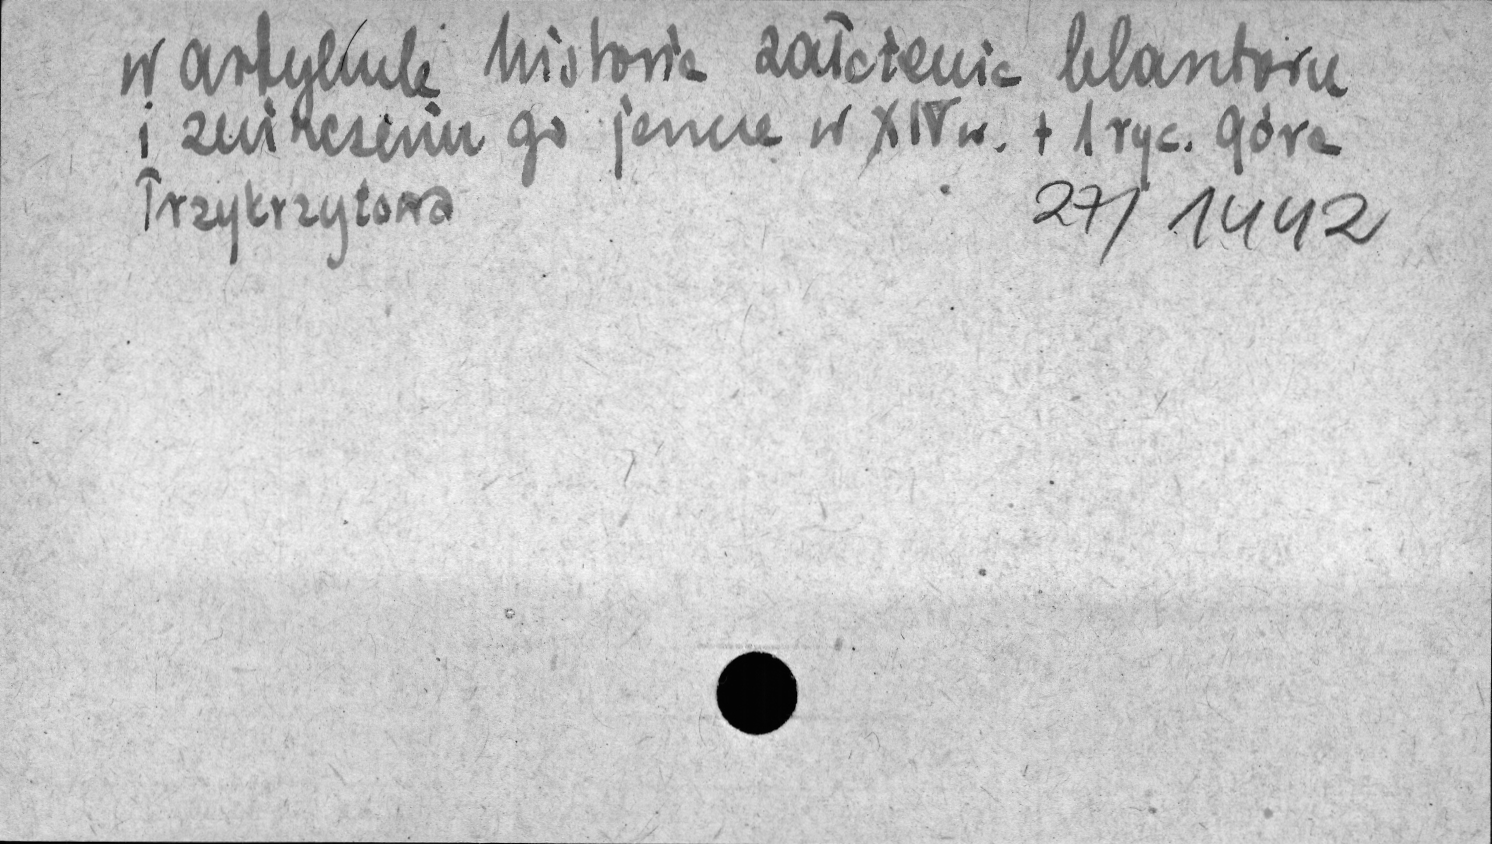 w artykule historia założenia klasztoru
i zniszczeniu go jeszcze w XIV w. + 1 ryc. Góra
Trzykrzyżowa 27/1442